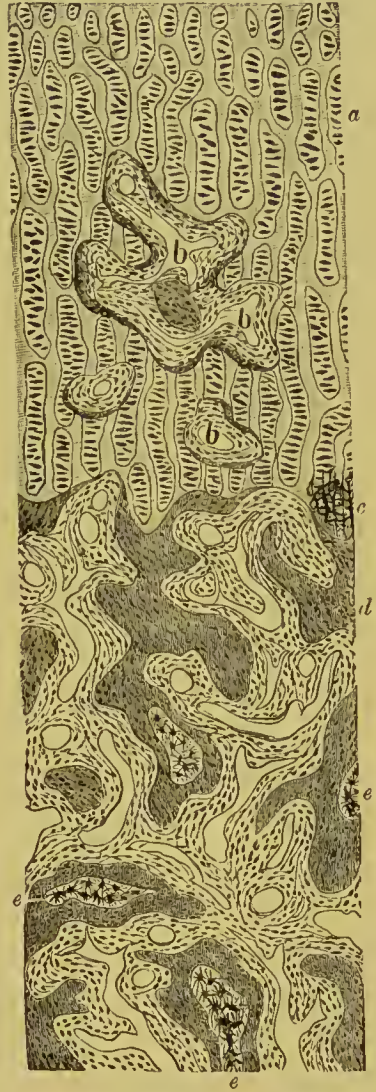 a
b
b
b
c
d
e
e
e